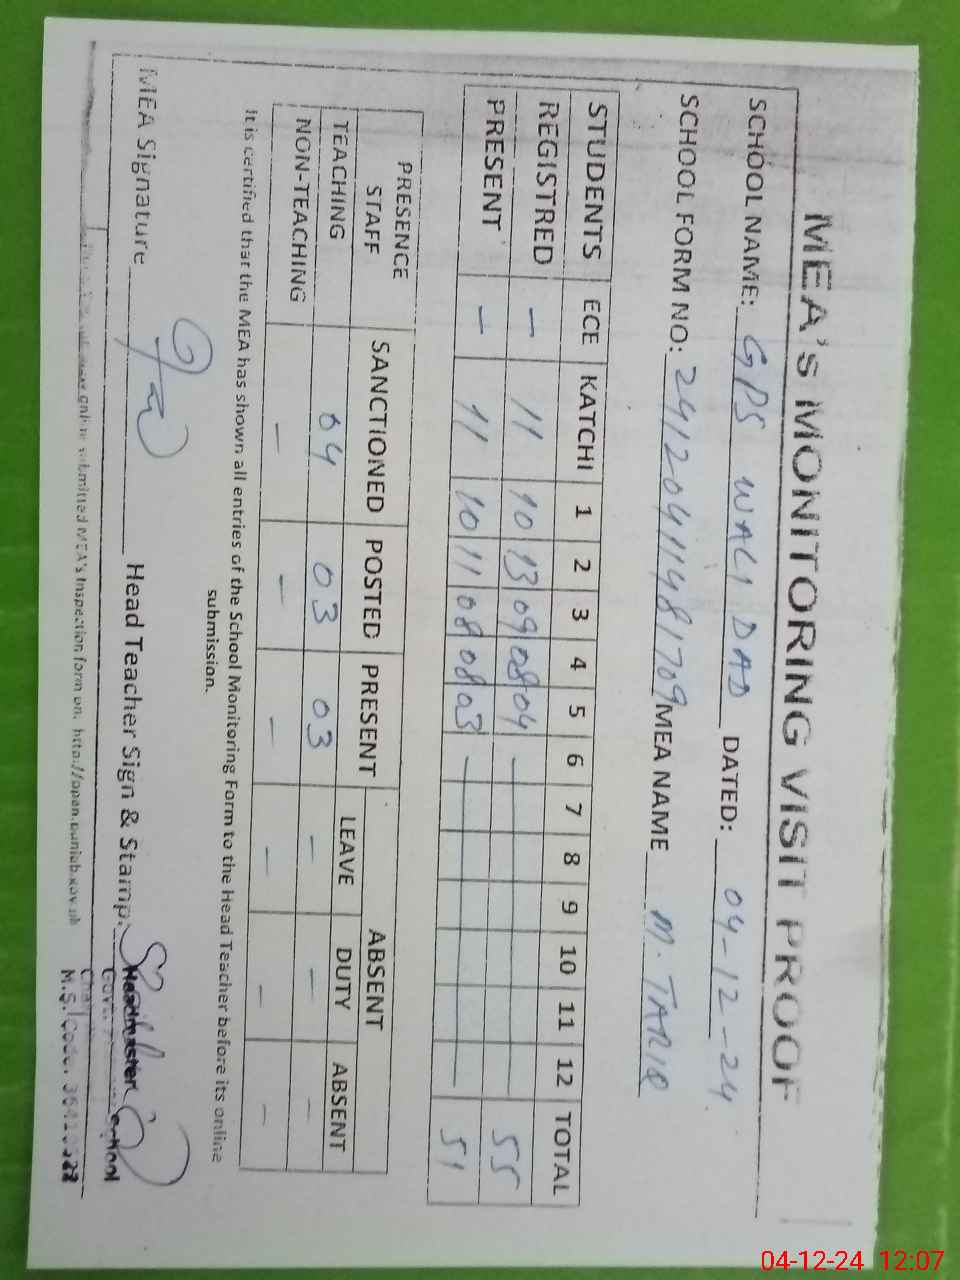 MEA'S MONITORING VISIT PROOF
SCHOOL NAME: GPS WALI DAD DATED: 04-12-24
SCHOOL FORM NO: 24120411481709 MEA NAME M. TARIQ
STUDENTS ECE KATCHI 1 2 3 4 5 6 7 8 9 10 11 12 TOTAL
REGISTRED - 11 10 13 09 08 04 - 55
PRESENT - 11 10 11 08 08 03 - 51
PRESENCE STAFF SANCTIONED POSTED PRESENT ABSENT
LEAVE DUTY ABSENT
TEACHING 04 03 03 - - -
NON-TEACHING - - - - - -
It is certified that the MEA has shown all entries of the School Monitoring Form to the Head Teacher before its online
submission.
MEA Signature Head Teacher Sign & Stamp:
Headmaster
Govt. School
M.S. Code:
online submitted MEA's Inspection form on: http://open.punjab.gov.pk
04-12-24 12:07